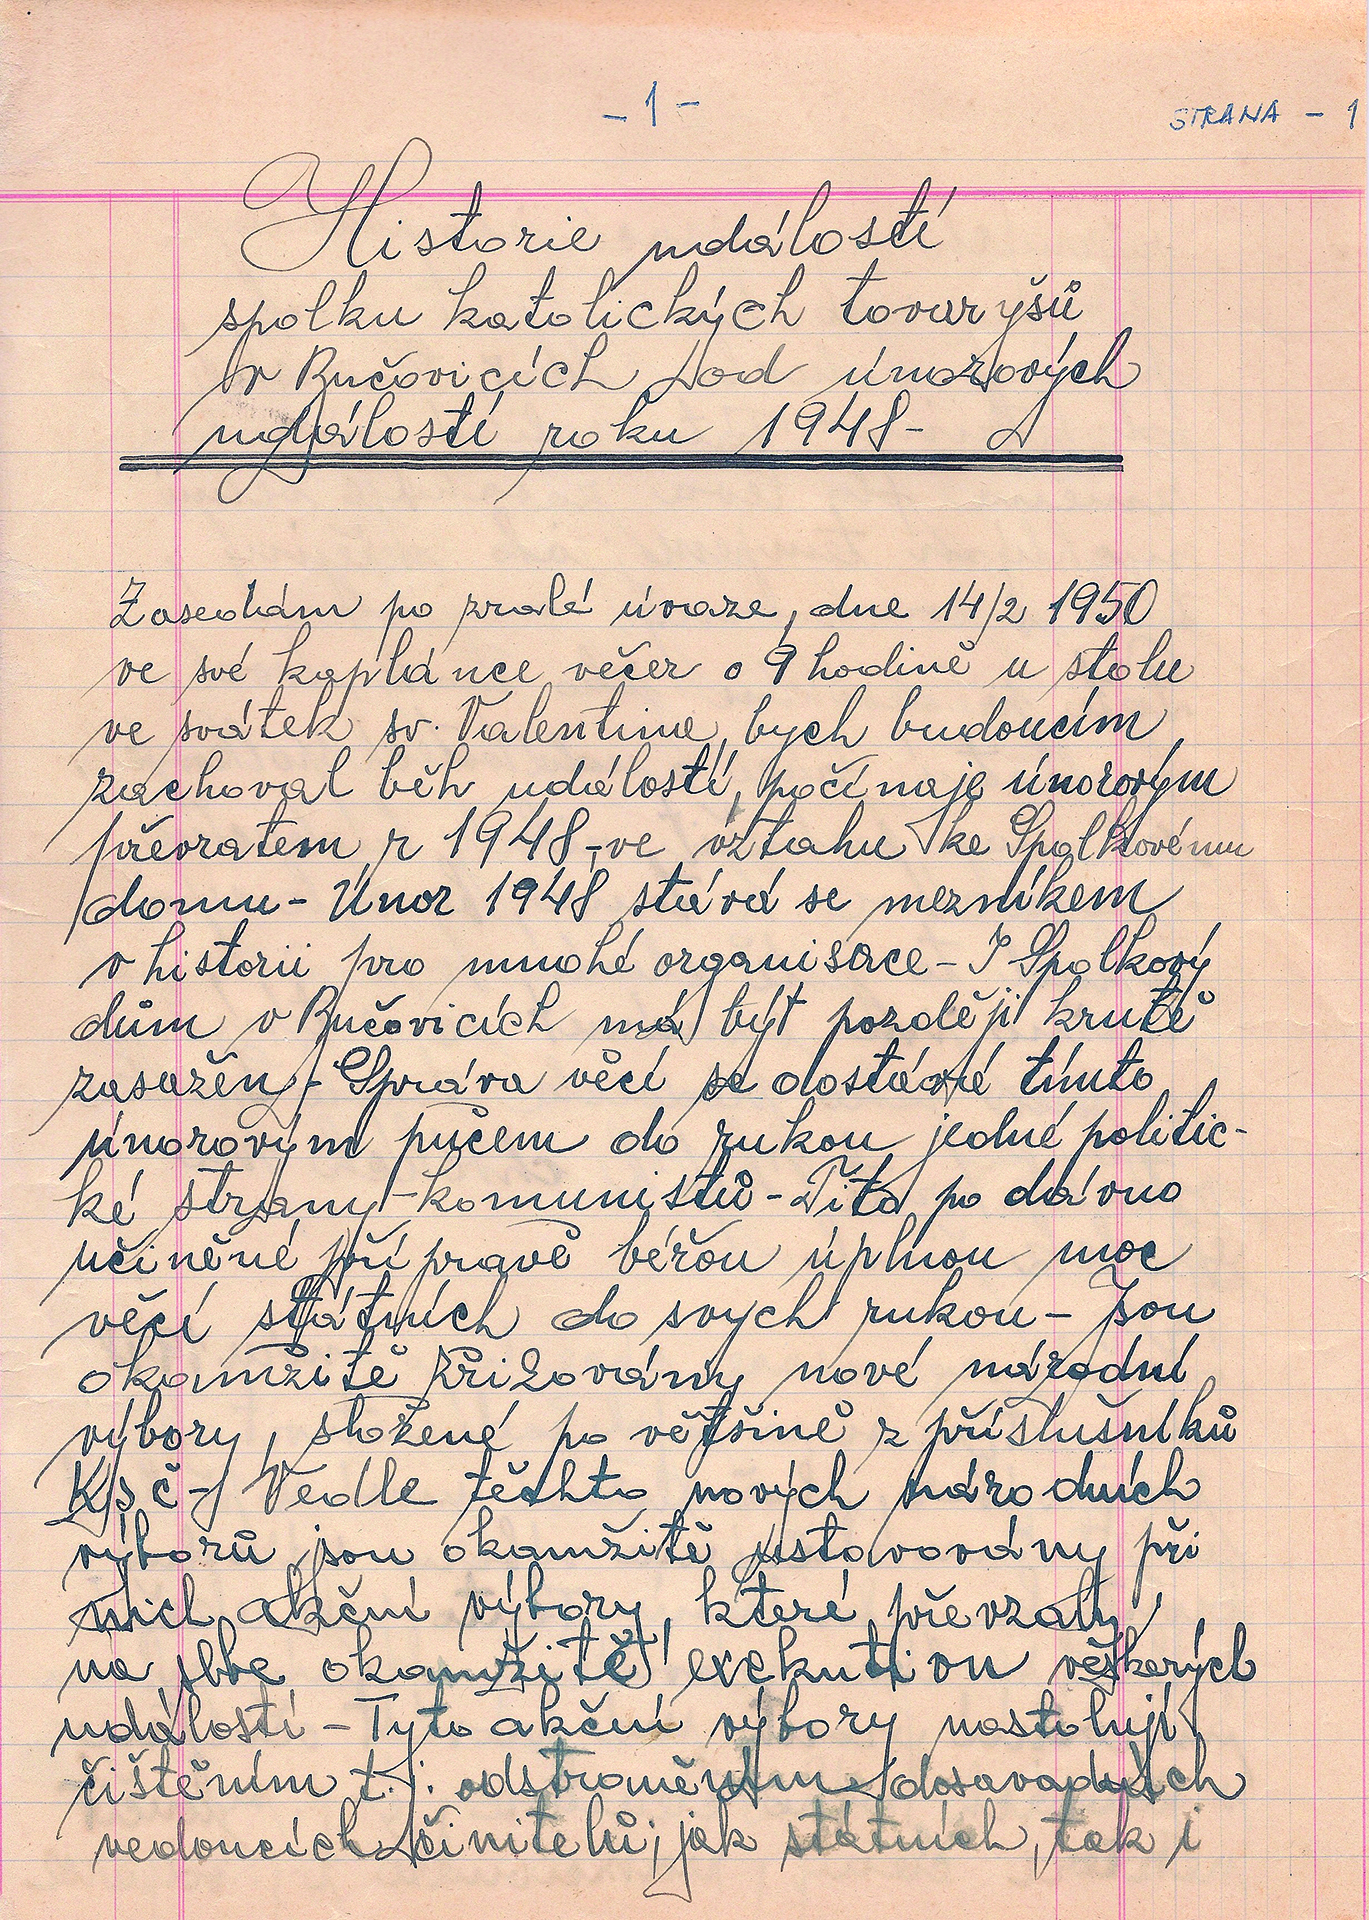 - 1 -
STRANA - 1
Historie událostí
spolku katolických tovaryšů
v Bučovicích od únorových
událostí roku 1948-
Zasedám po zralé úvaze, dne 14/2 1950
ve své kaplánce večer o 9 hodině u stolu
ve svátek sv. Valentina, bych budoucím
zachoval běh událostí, počínaje únorovým
převratem r 1948,-ve vztahu ke Spolkovému
domu- Únor 1948 stává se mezníkem
v historii pro mnohé organisace- I Spolkový
dům v Bučovicích má být později krutě
zasažen,- Správa věcí se dostává tímto
únorovým pučem do rukou jedné politic-
ké strany -komunistů- Tito po dávno
učiněné přípravě béřou úplnou moc
věcí státních do svých rukou- Jsou
okamžitě křižovány nové národní
výbory, složené po většině z příslušníků
KSČ- Vedle těchto nových národních
výborů jsou okamžitě ustavovány při
nich akční výbory, které převzaly
na sebe okamžitě exekutivu veškerých
událostí- Tyto akční výbory nastolují
čištěním t.j. odstraněním dosavadních
vedoucích činitelů, jak státních, tak i